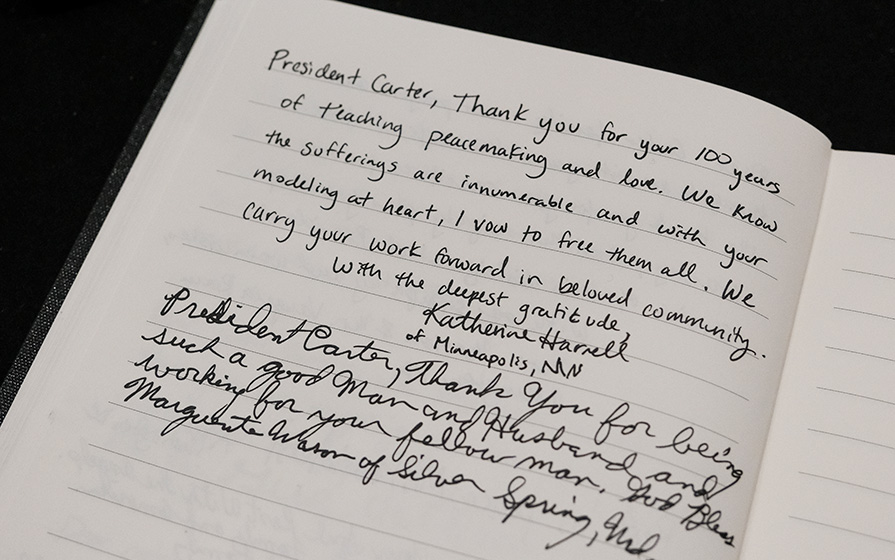 President Carter, Thank you for your 100 years
of teaching peacemaking and love. We know
the sufferings are innumerable and with your
modeling at heart, I vow to free them all. We
carry your work forward in beloved community.
With the deepest gratitude,
Katherine Harrell
of Minneapolis, MN
President Carter, Thank You for being
such a good Man and Husband and
working for your fellow man. God Bless
Marguerite Mason of Silver Spring, Md.